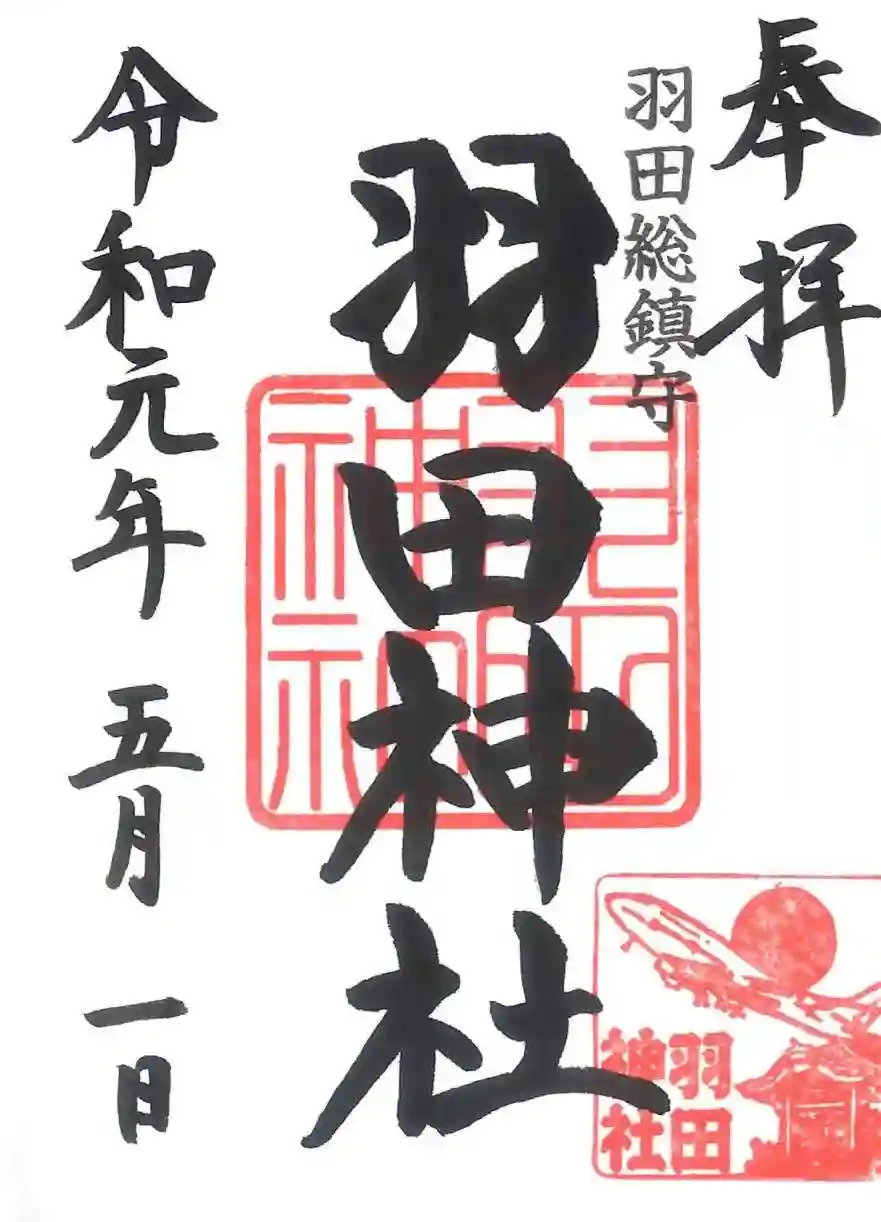 奉拝
羽田総鎮守
羽田神社
令和元年 五月 一日
羽田
神社